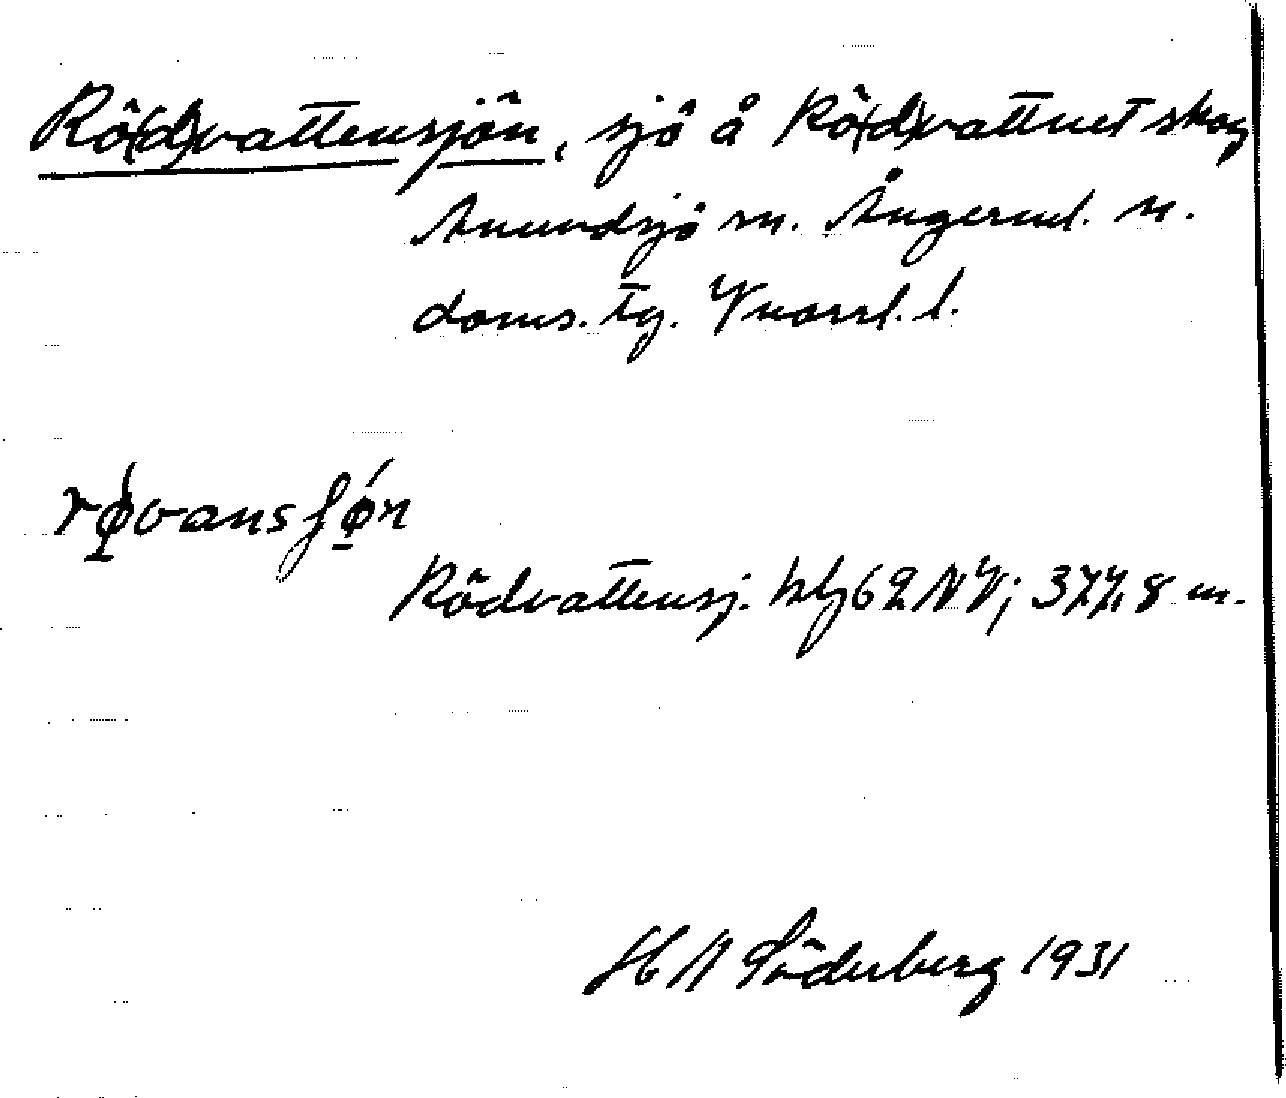 Rö(d)vattensjön, sjö å Rö(d)vattnet skog
Anundsjö sn. Ångerml. n.
doms. tg. Vnorrl. l.
rø̱vansʃø̱n
Rödvattensj. hbl 62 NV; 377,8 m.
H N Söderberg 1931